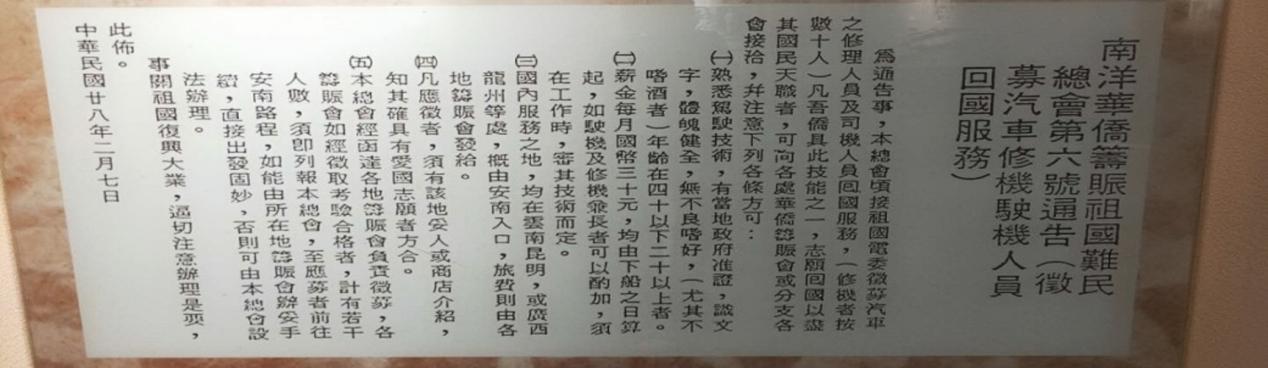 南洋華僑籌賑祖國難民
總會第六號通告（徵
募汽車修機駛機人員
回國服務）
為通告事，本總會頃接祖國電委徵募汽車
之修理人員及司機人員回國服務，（修機者按
數十人）凡吾僑具此技能之一，志願回國以盡
其國民天職者，可向各處華僑籌賑會或分支各
會接洽，幷注意下列各條方可：
㈠熟悉駕駛技術，有當地政府准證，識文
字，體魄健全，無不良嗜好，（尤其不
嗜酒者）年齡在四十以下二十以上者。
㈡薪金每月國幣三十元，均由下船之日算
起，如駛機及修機兼長者可以酌加，須
在工作時，審其技術而定。
㈢國內服務之地，均在雲南昆明，或廣西
龍州等處，概由安南入口，旅費則由各
地籌賑會發給。
㈣凡應徵者，須有該地妥人或商店介紹，
知其確具有愛國志願者方合。
㈤本總會經函達各地籌賑會負責徵募，各
籌賑會如經徵取考驗合格者，計有若干
人數，須即列報本總會，至應募者前往
安南路程，如能由所在地籌賑會辦妥手
續，直接出發固妙，否則可由本總會設
法辦理。
事關祖國復興大業，逼切注意辦理是要，
此佈。
中華民國廿八年二月七日